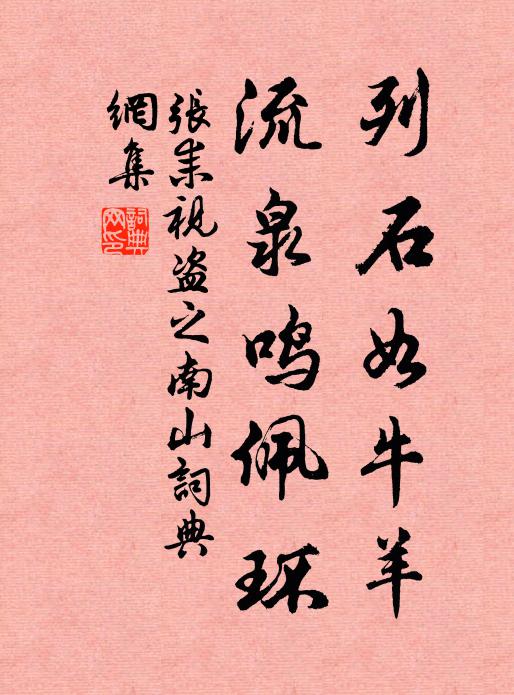 列石如牛羊
流泉鳴佩环
張耒視盗之南山詞典
網集
詞典
网印